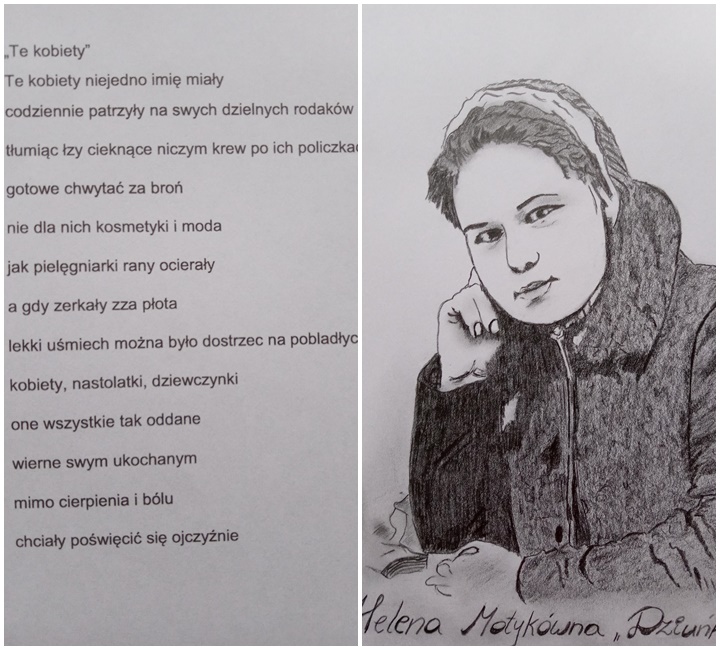 „Te kobiety”
Te kobiety niejedno imię miały
codziennie patrzyły na swych dzielnych rodaków
tłumiąc łzy cieknące niczym krew po ich
gotowe chwytać za broń
nie dla nich kosmetyki i moda
jak pielęgniarki rany ocierały
a gdy zerkały zza płota
lekki uśmiech można było dostrzec na
kobiety, nastolatki, dziewczynki
one wszystkie tak oddane
wierne swym ukochanym
mimo cierpienia i bólu
chciały poświęcić się ojczyźnie
Helena Motykówna